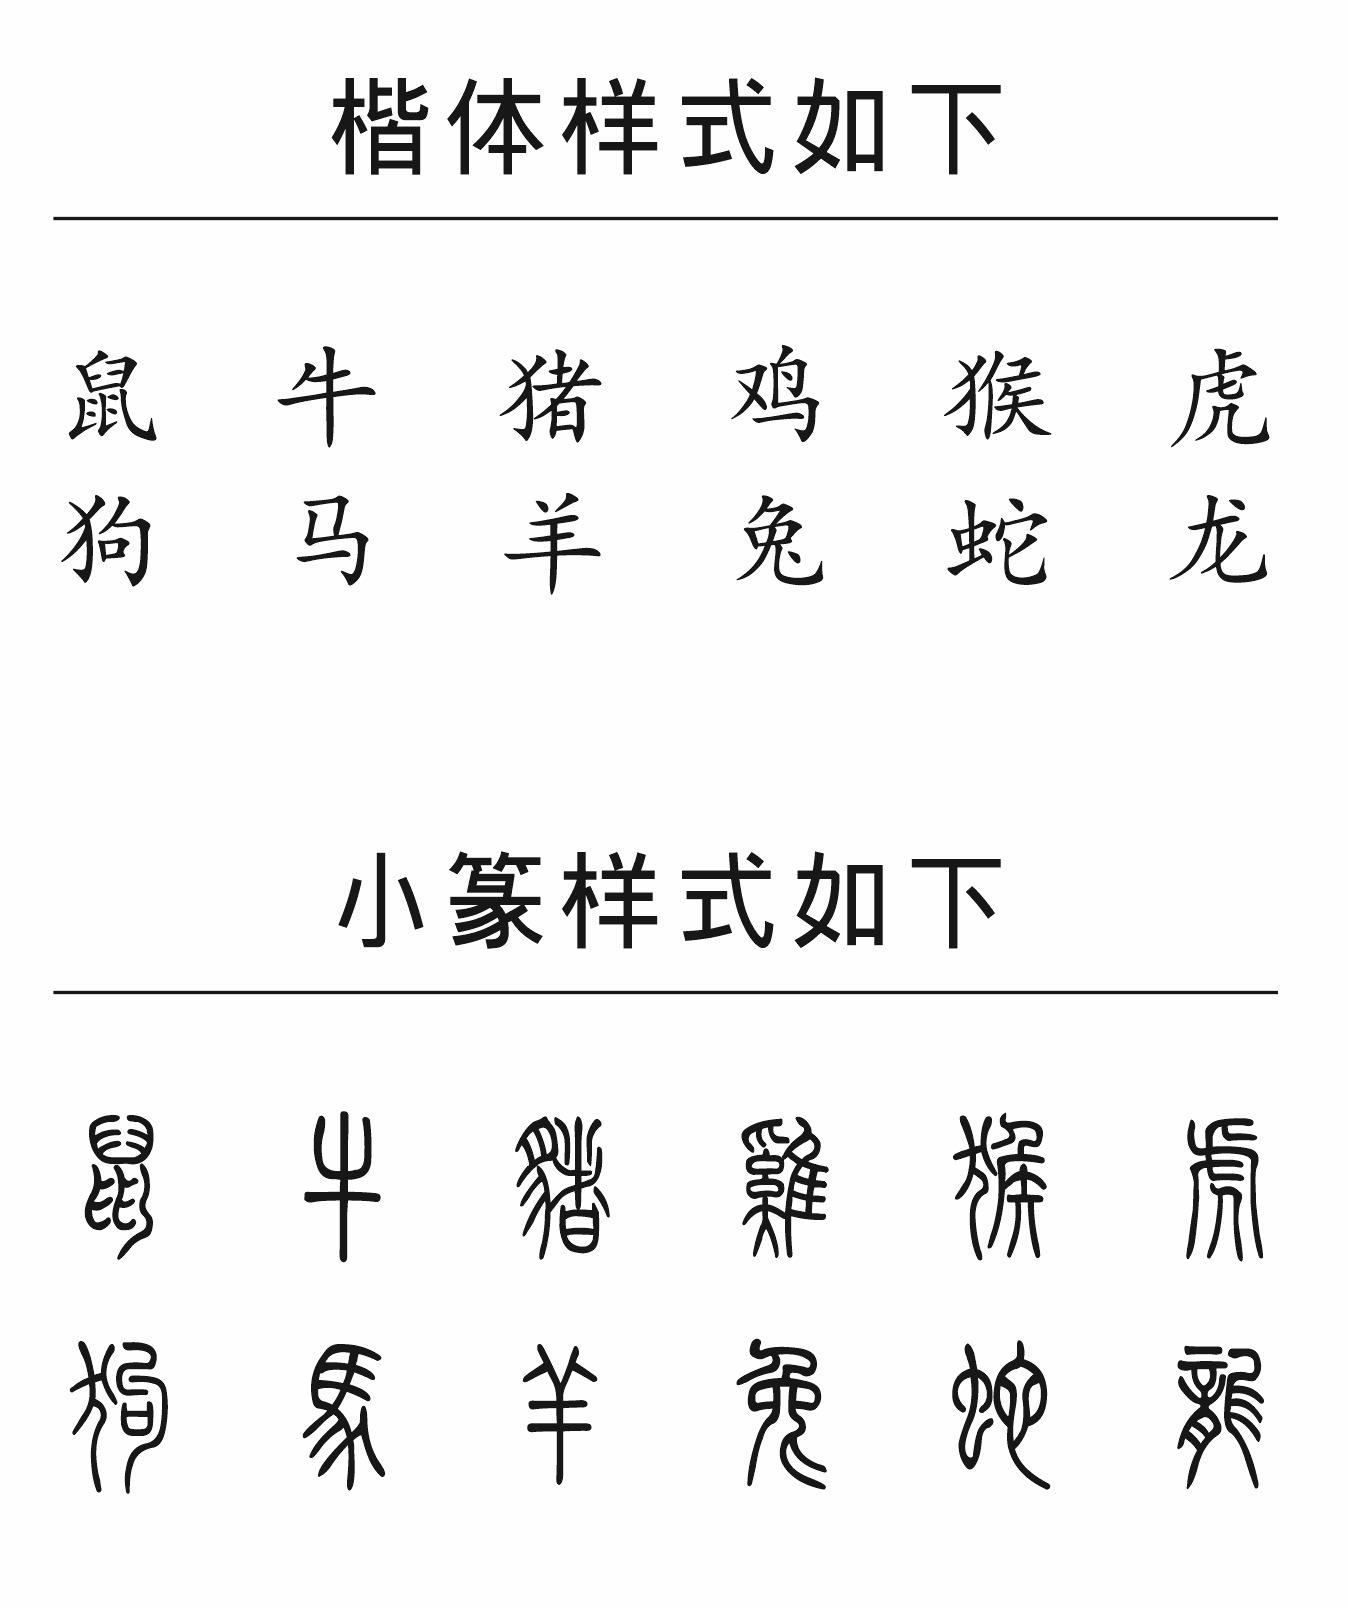 楷体样式如下
鼠 牛 猪 鸡 猴 虎
狗 马 羊 兔 蛇 龙
小篆样式如下
鼠 牛 豬 雞 猴 虎
狗 馬 羊 兔 蛇 龍